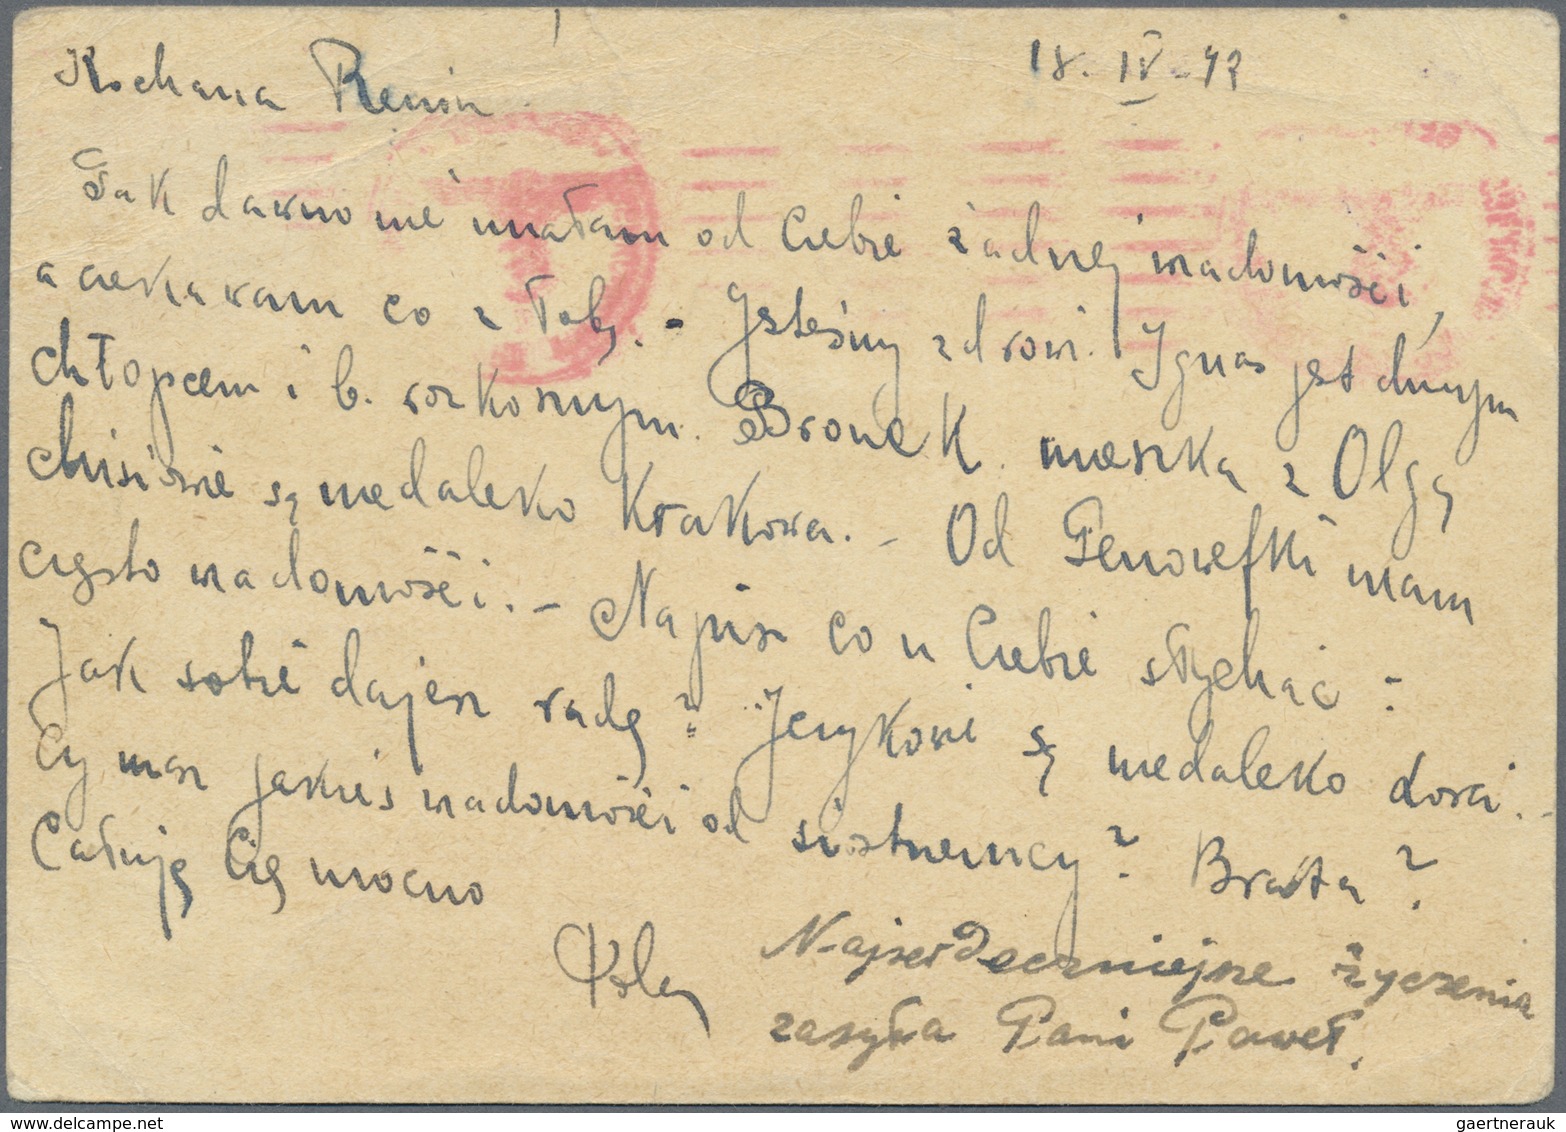 Kochana Reniu
18. IV - 43
Tak dawno nie miałam od Ciebie żadnej wiadomości,
a ciekawam co z Tobą. - Jesteśmy zdrowi. Ignaś jest dużym
chłopcem i b. rozkosznym. Bronek mieszka z Olgą
są niedaleko Krakowa. - Od Genowefki mam
często wiadomości. - Napisz co u Ciebie słychać -
Jak sobie dajesz radę? są niedaleko
Czy masz jakieś wiadomości od siostrzenicy? Brata?
Całuję Cię mocno
Najserdeczniejsze życzenia
zasyła Pani Paweł.
gaertnerauk